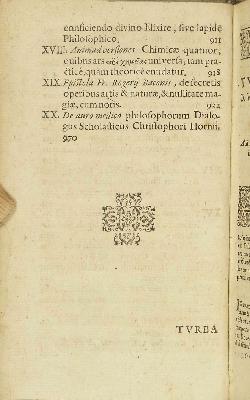 conficiendo divino Elixire, sive lapide
Philosophico. 911
XVIII. Animadversiones Chimicæ quatuor,
quibus ars universa, tam pra-
ctice, quam theorice enudatur. 918
XIX. Epistola Fr. Rogerij Baconis, de secretis
operibus artis & naturæ, & nullitate ma-
giæ, cum notis. 922
XX. De auro medico philosophorum Dialo-
gus Scholasticus Christophori Hornii.
970
TVRBA